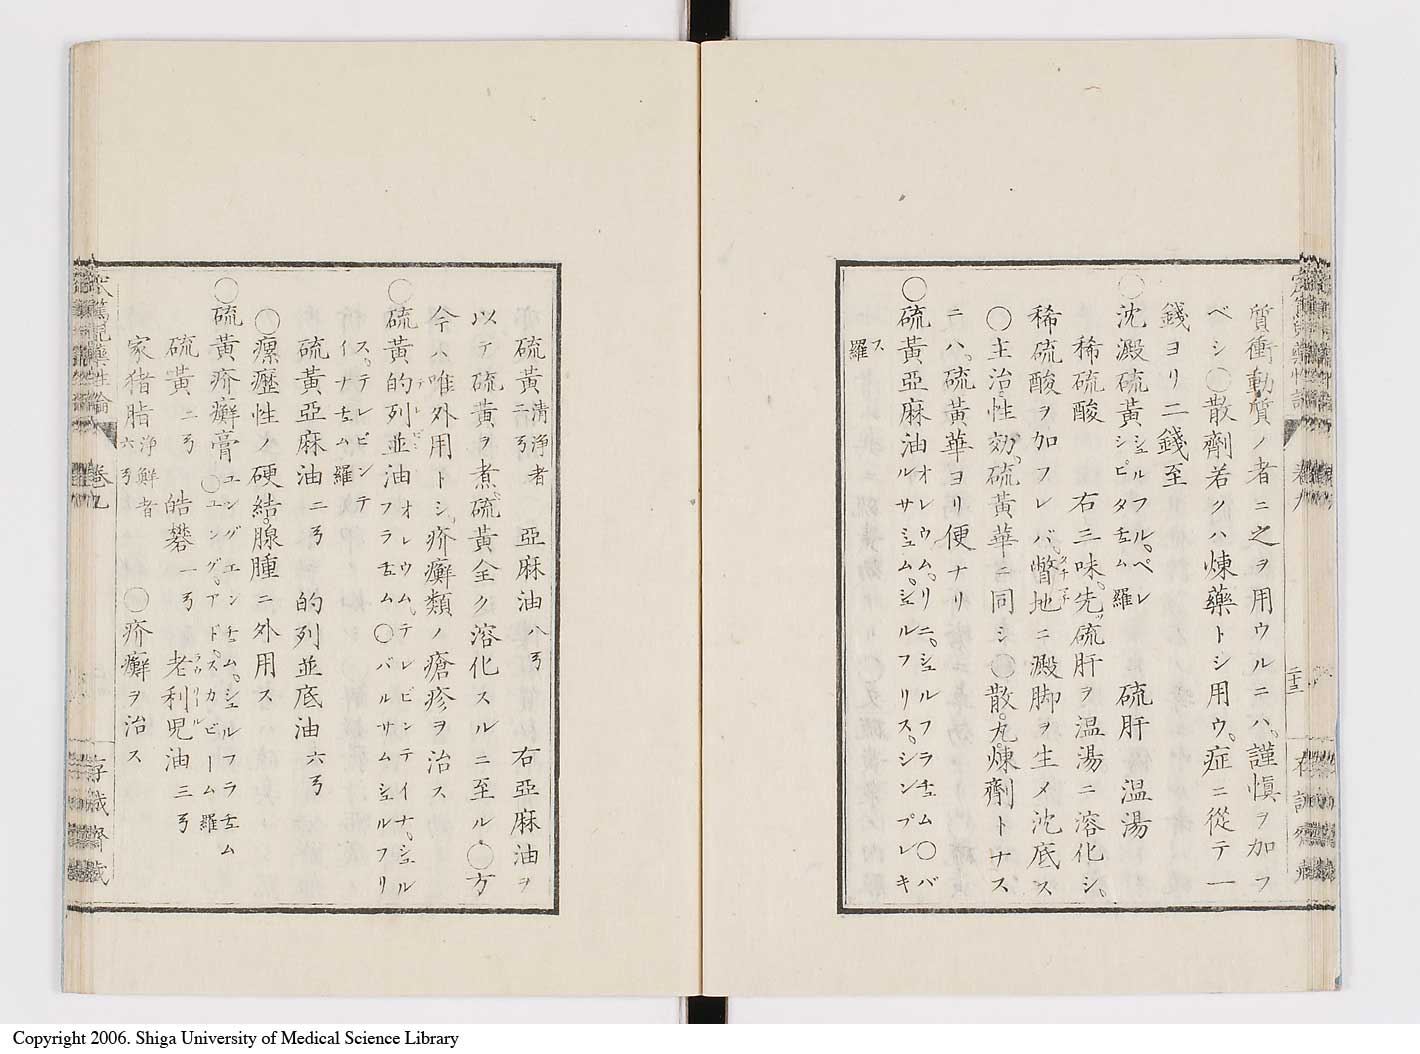 質衝動質ノ者ニ之ヲ用ウルニハ謹愼ヲ加フ
ベシ〇散劑若クハ煉藥トシ用ウ症ニ從テ一
錢ヨリ二錢至
〇沈澱硫黃シュルフル、ペレシピタチュム羅 硫肝 温湯
稀硫酸 右三味先ヅ硫肝ヲ温湯ニ溶化シ
稀硫酸ヲ加フレバ瞥地ニ澱脚ヲ生メ沈底ス
〇主治性効硫黃華ニ同シ〇散丸煉劑トナス
ニハ硫黃華ヨリ便ナリ
〇硫黃亞麻油オレウム、リニ、シュルフラチュム〇バルサミュム、シュルフリス、シンプレキ
ス羅
卷九
二十三
硫黃清浄者二弓 亞麻油八弓 右亞麻油ヲ
以テ硫黃ヲ煮硫黃全ク溶化スルニ至ル〇方
今ハ唯外用トシ疥癬類ノ瘡疹ヲ治ス
〇硫黃的列並油オレウム、テレビンテイナ、シュルフラチュム〇バルサムシュルフリ
ス、テレビンテイナチュム羅
硫黃亞麻油二弓 的列並底油六弓
〇瘰癧性ノ硬結腺腫ニ外用ス
〇硫黃疥癬膏ユングエンチュム、シュルフラチュム〇ユング、アド、スカビーム羅
硫黃二弓 皓礬一弓 老利児油三弓
家猪脂浄鮮者六弓 〇疥癬ヲ治ス
窊篤児藥性論
卷九
Copyright 2006. Shiga University of Medical Science Library